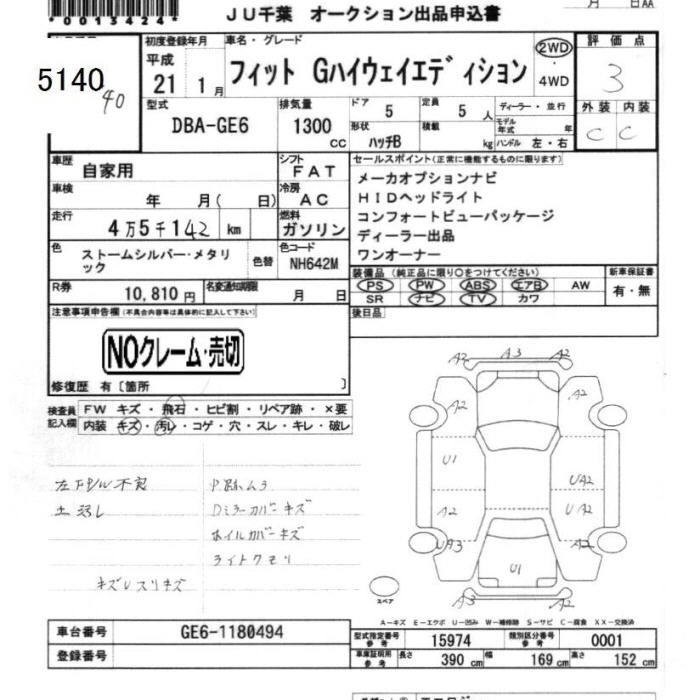 *0013424*
JU千葉 オークション出品申込書
月 日AA
5140
40
初度登録年月
平成
21 1月
車名・グレード
フィット Gハイウェイエディション
2WD
4WD
評価点
3
外装 内装
C C
型式
DBA-GE6
排気量
1300 CC
ドア 5
定員 5 人
形状 ハッチB
積載 kg
ディーラー・並行
モデル年式 年
ハンドル 左・右
車歴 自家用
シフト FAT
車検 年 月( 日)
冷房 AC
走行 4万5千142 km
燃料 ガソリン
色 ストームシルバー・メタリック
色替
色コード NH642M
R券 10,810円
名変通知期限 月 日
セールスポイント(正常に機能するものに限ります)
メーカオプションナビ
HIDヘッドライト
コンフォートビューパッケージ
ディーラー出品
ワンオーナー
装備品 (純正品に限り○をつけてください)
PS PW ABS エアB AW
SR ナビ TV カワ
新車保証書
有・無
後日品
注意事項申告欄(不具合内容等は具体的に記入して下さい)
NOクレーム・売切
修復歴 有〔箇所 〕
検査員記入欄
FW キズ・飛石・ヒビ割・リペア跡・×要
内装 キズ・汚レ・コゲ・穴・スレ・キレ・破レ
土汚レ
Dミラーカバーキズ
ホイルカバーキズ
ライトクモリ
キズレスリキズ
A2 A3 A2
A2 A2
U1 UA2
A2 UA2
UA3 A2
U1
A3 A2
スペア
A-キズ E-エクボ U-凹み W-補修跡 S-サビ C-腐食 XX-交換済
車台番号 GE6-1180494
登録番号
型式指定番号 参考 15974
類別区分番号 参考 0001
車庫証明用 参考
長さ 390 cm
幅 169 cm
高さ 152 cm